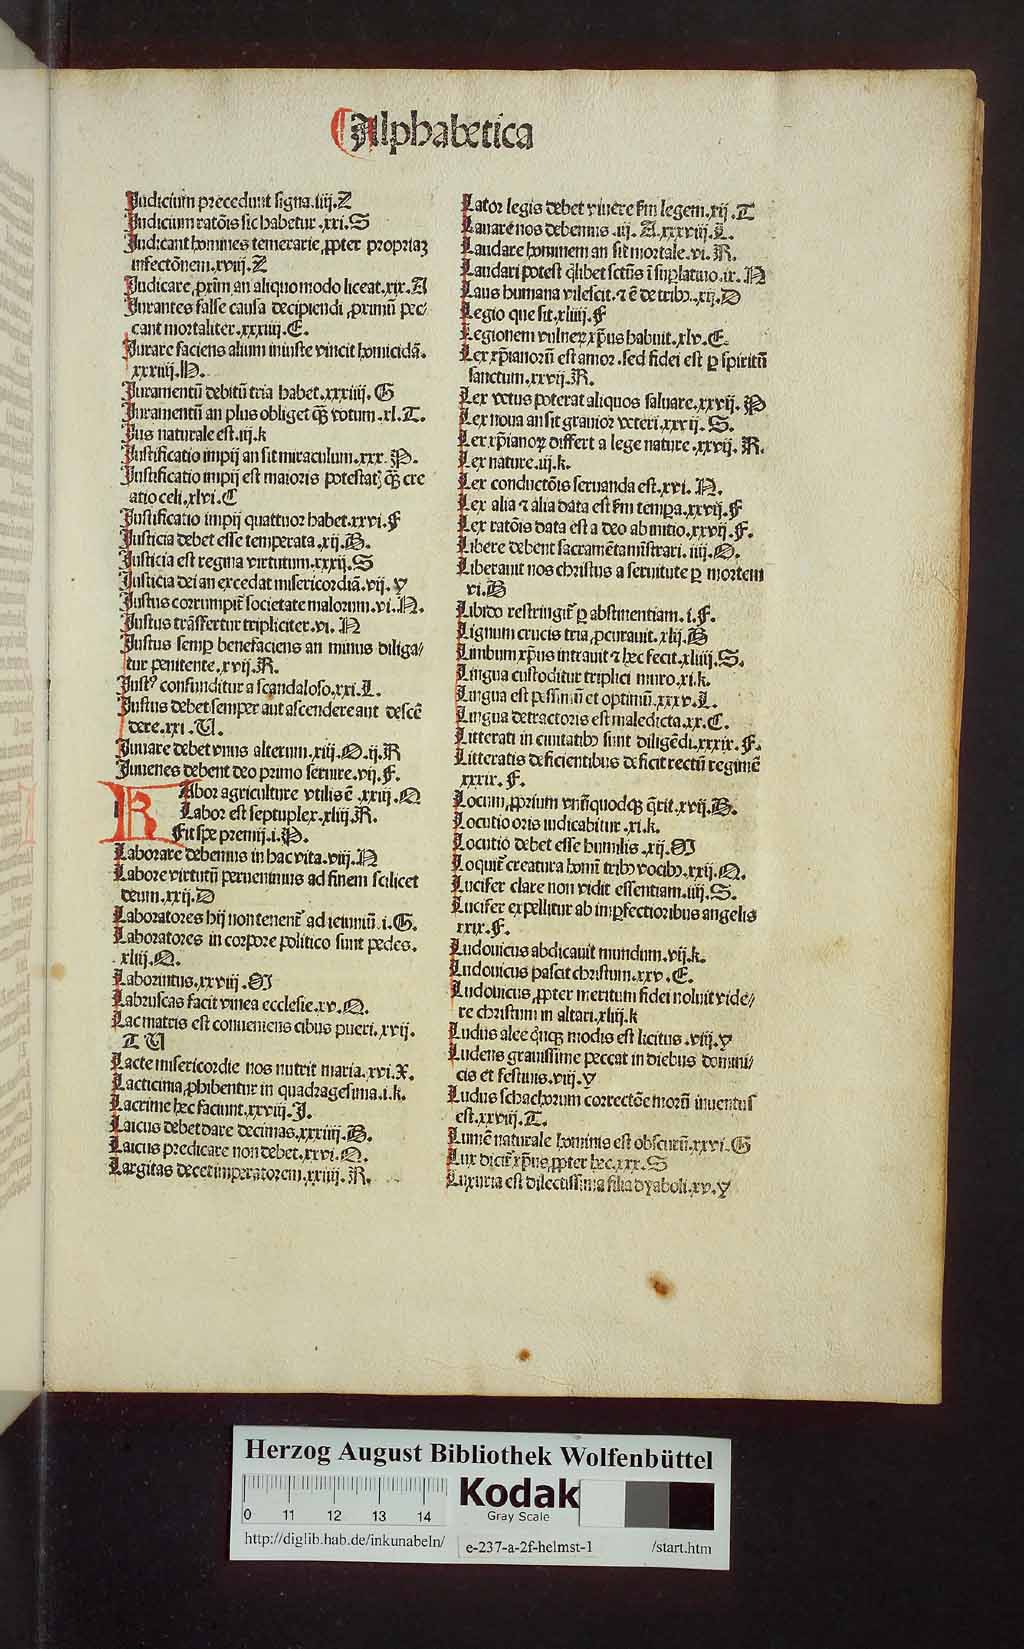 Alphabetica
Judicium precedunt signa.iiij.Z
Judicium ratōis sic habetur .xxi.S
Judicant homines temerarie ꝓpter propriaꝫ
infectōnem.xviij.Z
Judicare ꝓximū an aliquo modo liceat.xix.A
Jurantes false causa decipiendi ꝓximū pec⸗
cant mortaliter.xxxiiij.E.
Jurare faciens alium iniuste vincit homicidā.
xxxiiij.H.
Juramentū debitū tria habet.xxxiiij.G
Juramentū an plus obliget qꝫ votum.xl.T.
Jus naturale est.iij.k
Justificatio impij an sit miraculum.xxx.P.
Justificatio impij est maioris potestatꝭ qꝫ cre
atio celi.xlvi.C
Justificatio impij quattuor habet.xxvi.F
Justicia debet esse temperata .xij.B.
Justicia est regina virtutum.xxxij.S
Justicia dei an excedat misericordiā.vij.y
Justus corrumpit̄ societate malorum.vi.N.
Justus trāsfertur tripliciter.vi.N
Justus semꝑ benefaciens an minus diliga⸗
tur penitente.xvij.R.
Justꝰ confunditur a scandaloso.xxi.L.
Justus debet semper aut ascendere aut descē
dere.xxi.U.
Juuare debet vnus alterum.xiij.O.ij.R
Juuenes debent deo primo seruire.vij.F.
LAbor agriculture vtilis ē .xxiij.Q
Labor est septuplex.xliij.R.
Fit spe premij.i.P.
Laborare debemus in hac vita.viij.N
Labore virtutū peruenimus ad finem scilicet
deum.xxij.D
Laboratores hij non tenent̄ ad ieiuniū.i.G.
Laboratores in corpore politico sunt pedes.
xliij.Q.
Laborintus.xxviij.M
Labruscas facit vinea ecclesie.xv.Q.
Lac matris est conueniens cibus pueri.xvij.
T U
Lacte misericordie nos nutrit maria.xvi.X.
Lacticinia ꝓhibentur in quadragesima.i.k.
Lacrime hec faciunt.xxviij.J.
Laicus debet dare decimas.xxxiiij.B.
Laicus predicare non debet.xxvi.Q.
Largitas decet imperatorem.xxiiij.R.
Lator legis debet viuere ẜm legem.xij.T
Lauare nos debemus .iij.A.xxxviij.L.
Laudare hominem an sit mortale.vi.R.
Laudari potest q̄libet sctūs ī suꝑlatiuo.ix.N
Laus humana vilescit.⁊ ē de tribꝫ.xij.D
Legio que sit.xliiij.F
Legionem vulneꝝ xp̄us habuit.xlv.E.
Lex xp̄ianorū est amor.sed fidei est ꝑ spiritū
sanctum.xxvij.R.
Lex vetus poterat aliquos saluare.xxvij.P
Lex noua an sit grauior veteri.xxvij.S.
Lex xp̄ianoꝝ differt a lege nature.xxvij.R.
Lex nature.iij.k.
Lex conductōis seruanda est.xvi.N.
Lex alia ⁊ alia data est ẜm tempa.xxvij.F
Lex ratōis data est a deo ab initio.xxvij.F.
Libere debent sacramēta mīstrari.iiij.O.
Liberauit nos christus a seruitute ꝑ mortem
vi.B
Libido restringit̄ ꝑ abstinentiam.i.F.
Lignum crucis tria ꝓcurauit.xlij.B
Limbum xp̄us intrauit ⁊ hec fecit.xliiij.S.
Lingua custoditur triplici muro.xi.k.
Lingua est pessimū et optimū.xxxv.L.
Lingua detractoris est maledicta.xx.C.
Litterati in ciuitatibꝫ sunt diligēdi.xxxix.F.
Litteratis deficientibus deficit rectū regimē
xxxix.F.
Locum ꝓprium vnūquodqꝫ q̄rit.xvij.B.
Locutio oris iudicabitur.xi.k.
Locutio debet esse humilis .xij.M
Loquit̄ creatura homī tribꝫ vocibꝫ.xxij.Q.
Lucifer clare non vidit essentiam.iiij.S.
Lucifer expellitur ab imꝑfectioribus angelis
xxix.F.
Ludouicus abdicauit mundum.vij.k.
Ludouicus pascit christum.xxv.E.
Ludouicus ꝓpter meritum fidei noluit vide⸗
re christum in altari.xliij.k
Ludus alee qͥnqꝫ modis est licitus.viij.y
Ludens grauissime peccat in diebus domini⸗
cis et festiuis.viij.y
Ludus schachorum correctōe morū inuentus
est.xxviij.T.
Lumē naturale hominis est obscurū.xxvi.G
Lux dicit̄ xp̄us ꝓpter hec.xxx.S
Luxuria est dilectissima filia dyaboli.xv.y
Herzog August Bibliothek Wolfenbüttel
0 11 12 13 14
Kodak
Gray Scale
http://diglib.hab.de/inkunabeln/ e-237-a-2f-helmst-1 /start.htm